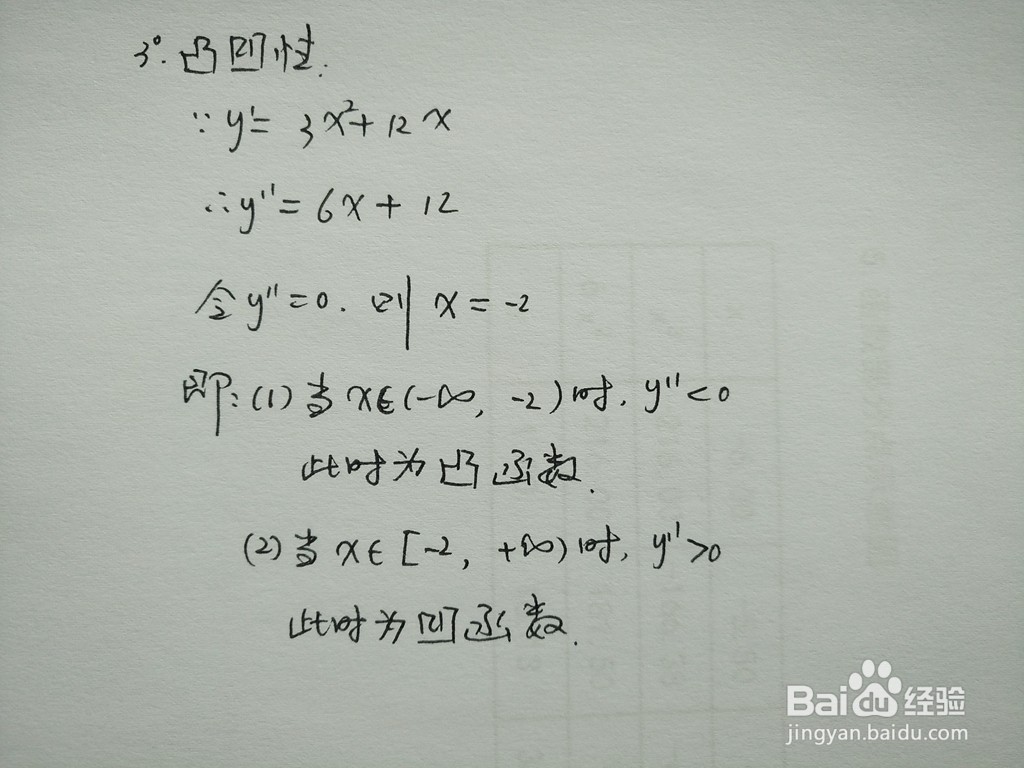 3°. 凸凹性.
∵ y'= 3x²+12x
∴ y''= 6x+12
令 y''=0. 则 x=-2
即: (1) 当 x∈(-∞, -2) 时, y''<0
此时为凸函数.
(2) 当 x∈[-2, +∞) 时, y''>0
此时为凹函数.
Baidu 经验
jingyan.baidu.com